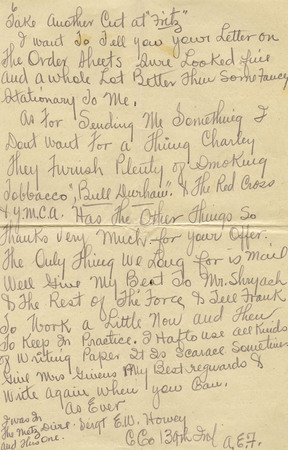 6
Take Another Cut at "Fritz"
I want To Tell you your Letter on
The Order Sheets Sure Looked fine
and a whole Lot Better Then Some Fancy
Stationary To Me.
As For Sending Me Something I
Dont Want For a Thing Charley
They Furnish Plenty of Smoking
Tobbacco, "Bull Durham." & The Red Cross
& Y.M.C.A. Has The Other Things So
Thanks Very Much for your Offer.
The Only Thing We Long for is Mail
Well Give My Best To Mr. Shryach
& The Rest of The Force & Tell Frank
To Work a Little Now and Then
To Keep In Practice. I Haf to use All Kinds
of Writing Paper It Is Scarace Sometimes
Give Mrs Givens My Best reguards &
Write Again when you Can.
As Ever
Sergt E.W. Howey
Co C 139th Inf A.E.F.
I was In
The Metz Drive
and This One.